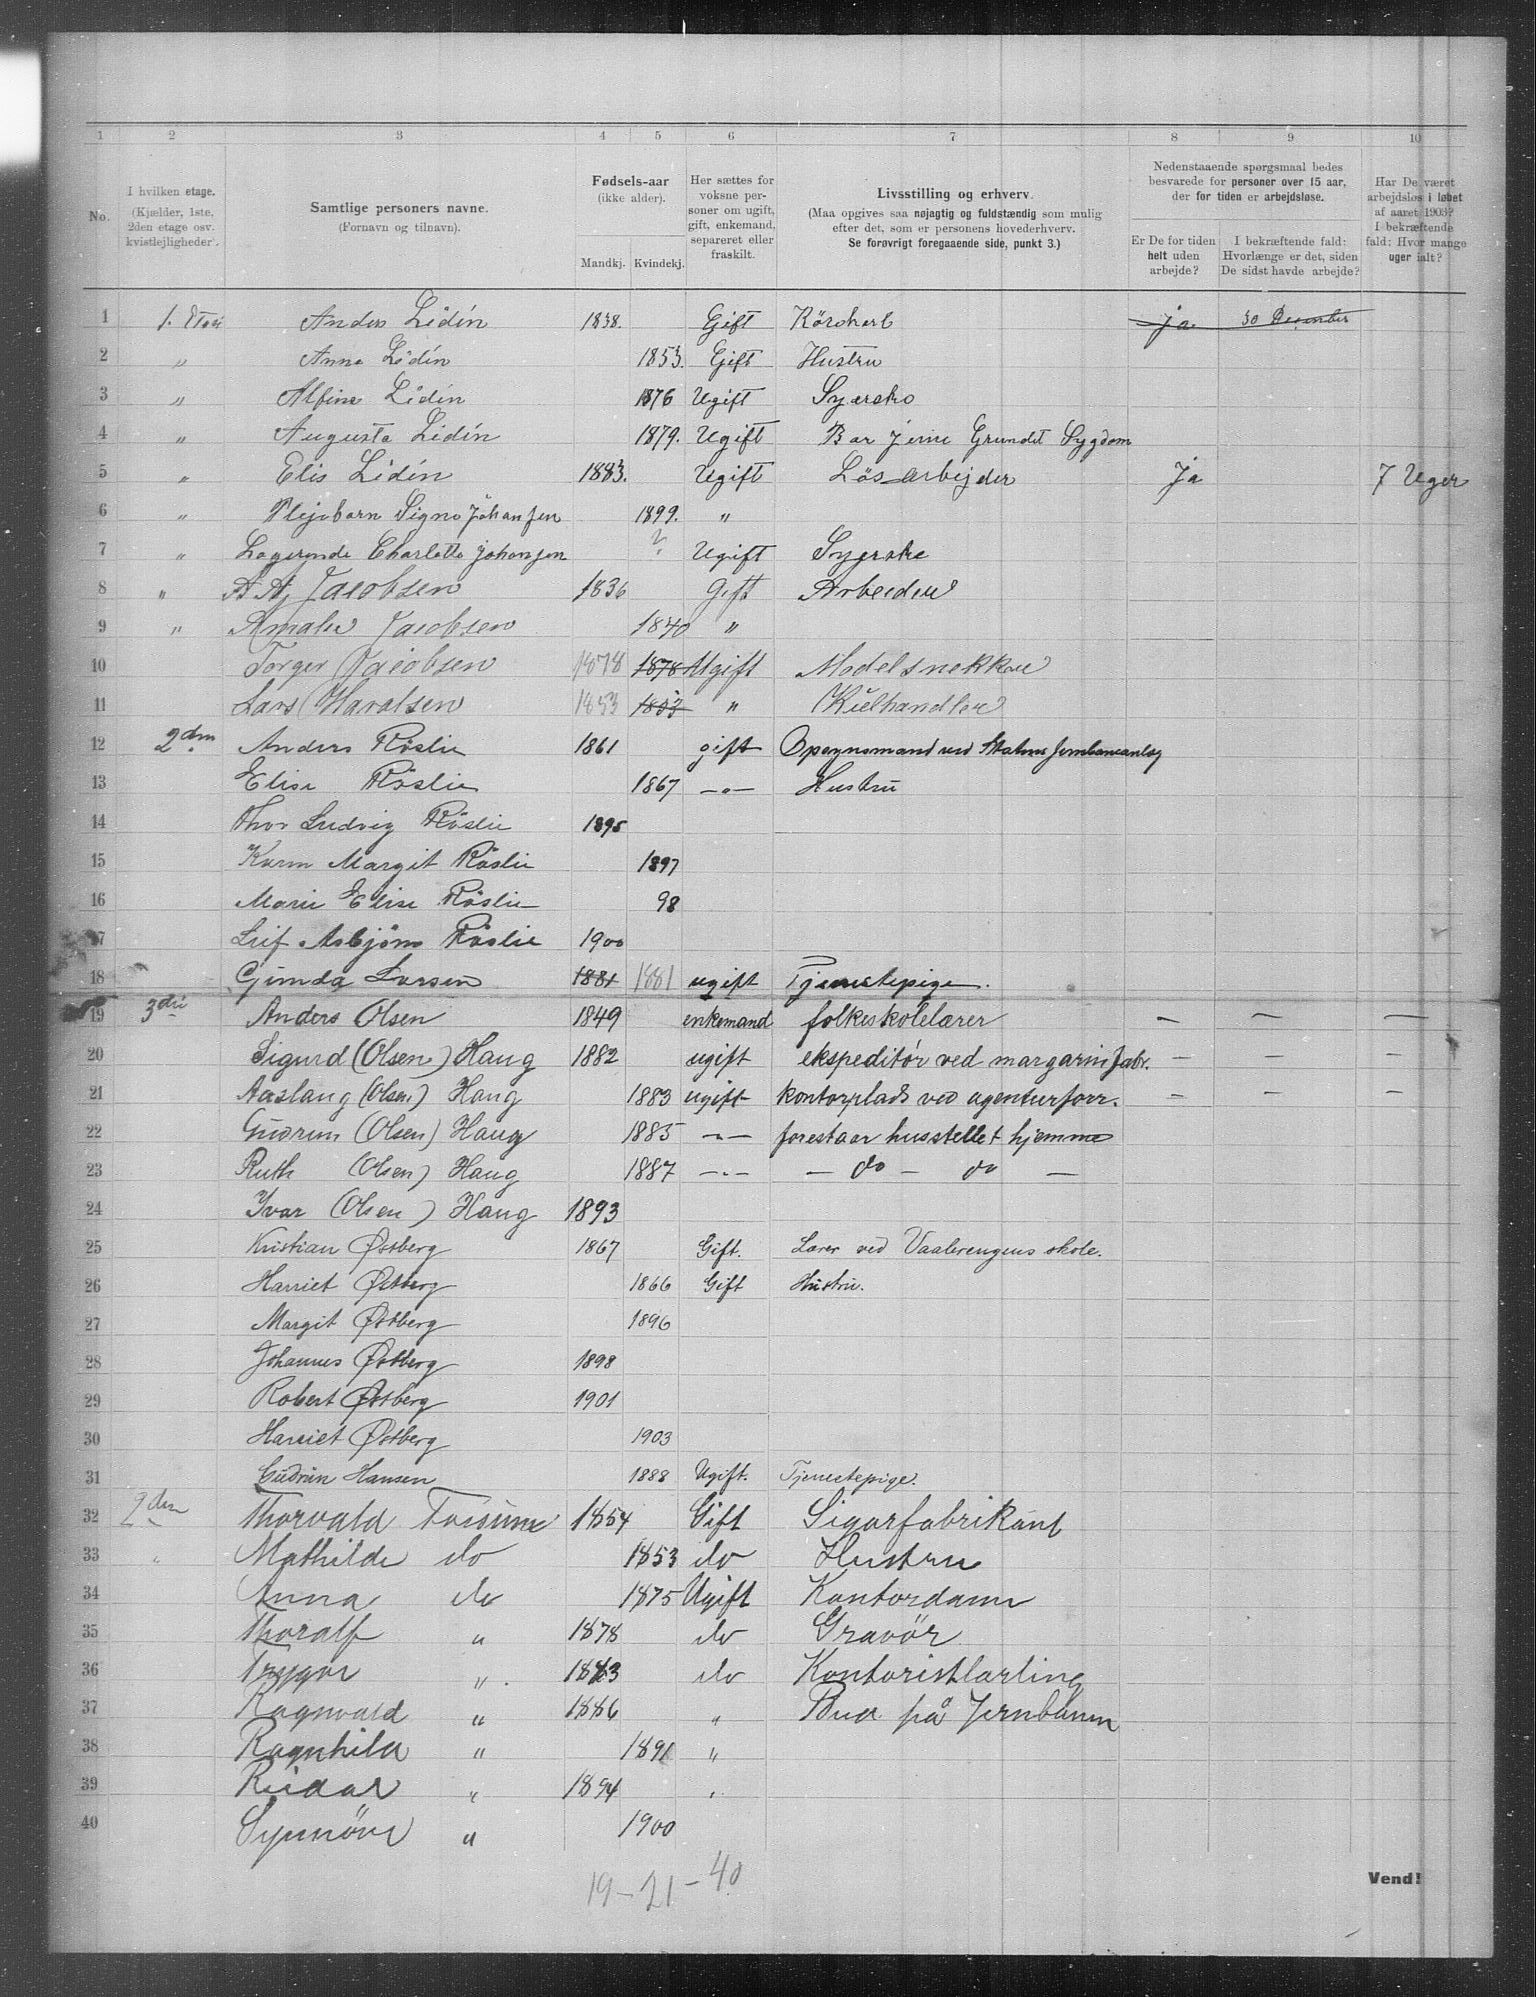 1 2 3 4 5 6 7 8 9 10
No.
I hvilken etage. (Kjælder, 1ste, 2den etage osv. kvistlejligheder).
Samtlige personers navne. (Fornavn og tilnavn).
Fødsels-aar (ikke alder). Mandkj. Kvindekj.
Her sættes for voksne personer om ugift, gift, enkemand, separeret eller fraskilt.
Livsstilling og erhverv. (Maa opgives saa nøjagtig og fuldstændig som mulig efter det, som er personens hovederhverv. Se forøvrigt foregaaende side, punkt 3.)
Nedenstaaende spørgsmaal bedes besvarede for personer over 15 aar, der for tiden er arbejdsløse.
Er De for tiden helt uden arbejde?
I bekræftende fald: Hvorlænge er det, siden De sidst havde arbejde?
Har De været arbejdsløs i løbet af aaret 1903? I bekræftende fald: Hvor mange uger ialt?
1 1. Etasi Anders Lidin 1838. Gift Körskarl ja 30 December
2 " Anna Lidin 1853. Gift Hustru
3 " Alfine Lidin 1876 Ugift Syerske
4 " Augusta Lidin 1879. Ugift Bar jeme Grundet Sygdom
5 " Elis Lidin 1883. Ugift Lösarbejder Ja 7 Uger
6 " Plejebarn Signe Johansen 1899. "
7 " Logerende Charlotte Johansen ? Ugift Syerske
8 " A Aj Jacobsen 1836 Gift Arbeider
9 " Amalie Jacobsen 1840 "
10 Torger Jacobsen 1878 1878 Ugift Modelsnekker
11 Lars Haralsen 1853 1853 " Kulhandler
12 2den Anders Röslie 1861 gift Opsynsmand ved Statens Jernbaneanlæg
13 Elise Röslie 1867 —"— Hustru
14 Thor Ludvig Röslie 1895
15 Karen Margit Röslie 1897
16 Marie Elise Röslie 98
17 Leif Asbjörn Röslie 1900
18 Gunda Larsen 1881 1881 ugift Tjenestepige.
19 3die Anders Olsen 1849 enkemand folkeskolelærer — — —
20 Sigurd (Olsen) Haug 1882 ugift ekspeditör ved margarinfabr. — — —
21 Aaslaug (Olsen) Haug 1883 ugift kontorplads ved agenturforr. — — —
22 Gudrun (Olsen) Haug 1885 —"— forestaar husstellet hjemme
23 Ruth (Olsen) Haug 1887 —"— — do — do —
24 Ivar (Olsen) Haug 1893
25 Kristian Østberg 1867 Gift. Lærer ved Vaalerengens skole.
26 Harriet Østberg 1866 Gift Hustru.
27 Margit Østberg 1896
28 Johannes Østberg 1898
29 Robert Østberg 1901
30 Harriet Østberg 1903
31 Gudrun Hansen 1888 Ugift. Tjenestepige.
32 2den Thorvald Fossum 1854 Gift Sigarfabrikant
33 " Mathilde do 1853 do Hustru
34 Anna do 1875 Ugift Kontordame
35 Thoralf " 1878 do Gravör
36 Trygve " 1883 do Kontoristlærling
37 Ragnvald " 1886 " Bud på Jernbanen
38 Ragnhild " 1891 "
39 Reidar " 1894 "
40 Synnöve " 1900
19-21-40
Vend!